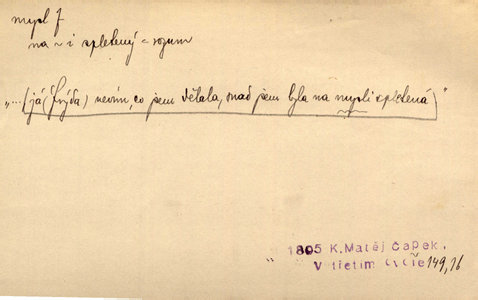 mysl f
na ~ i spletený = rozum
"...(já (Frýda) nevím, co jsem dělala, snad jsem byla na mysli spletená)"
1895 K.Matěj Čapek,
V třetím dvoře 149,16